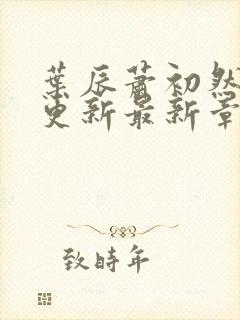 葉辰蕭初然
更新最新章
致時年